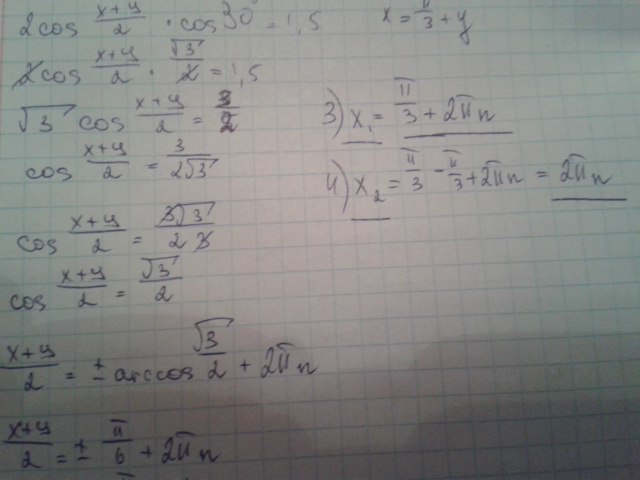 2cos (x+y)/2 · cos30° = 1,5
2cos (x+y)/2 · √3/2 = 1,5
√3 cos (x+y)/2 = 3/2
cos (x+y)/2 = 3/(2√3)
cos (x+y)/2 = 3√3/(2 3)
cos (x+y)/2 = √3/2
(x+y)/2 = ± arccos √3/2 + 2πn
(x+y)/2 = ± π/6 + 2πn
x = π/3 + y
3) x₁ = π/3 + 2πn
4) x₂ = π/3 - π/3 + 2πn = 2πn